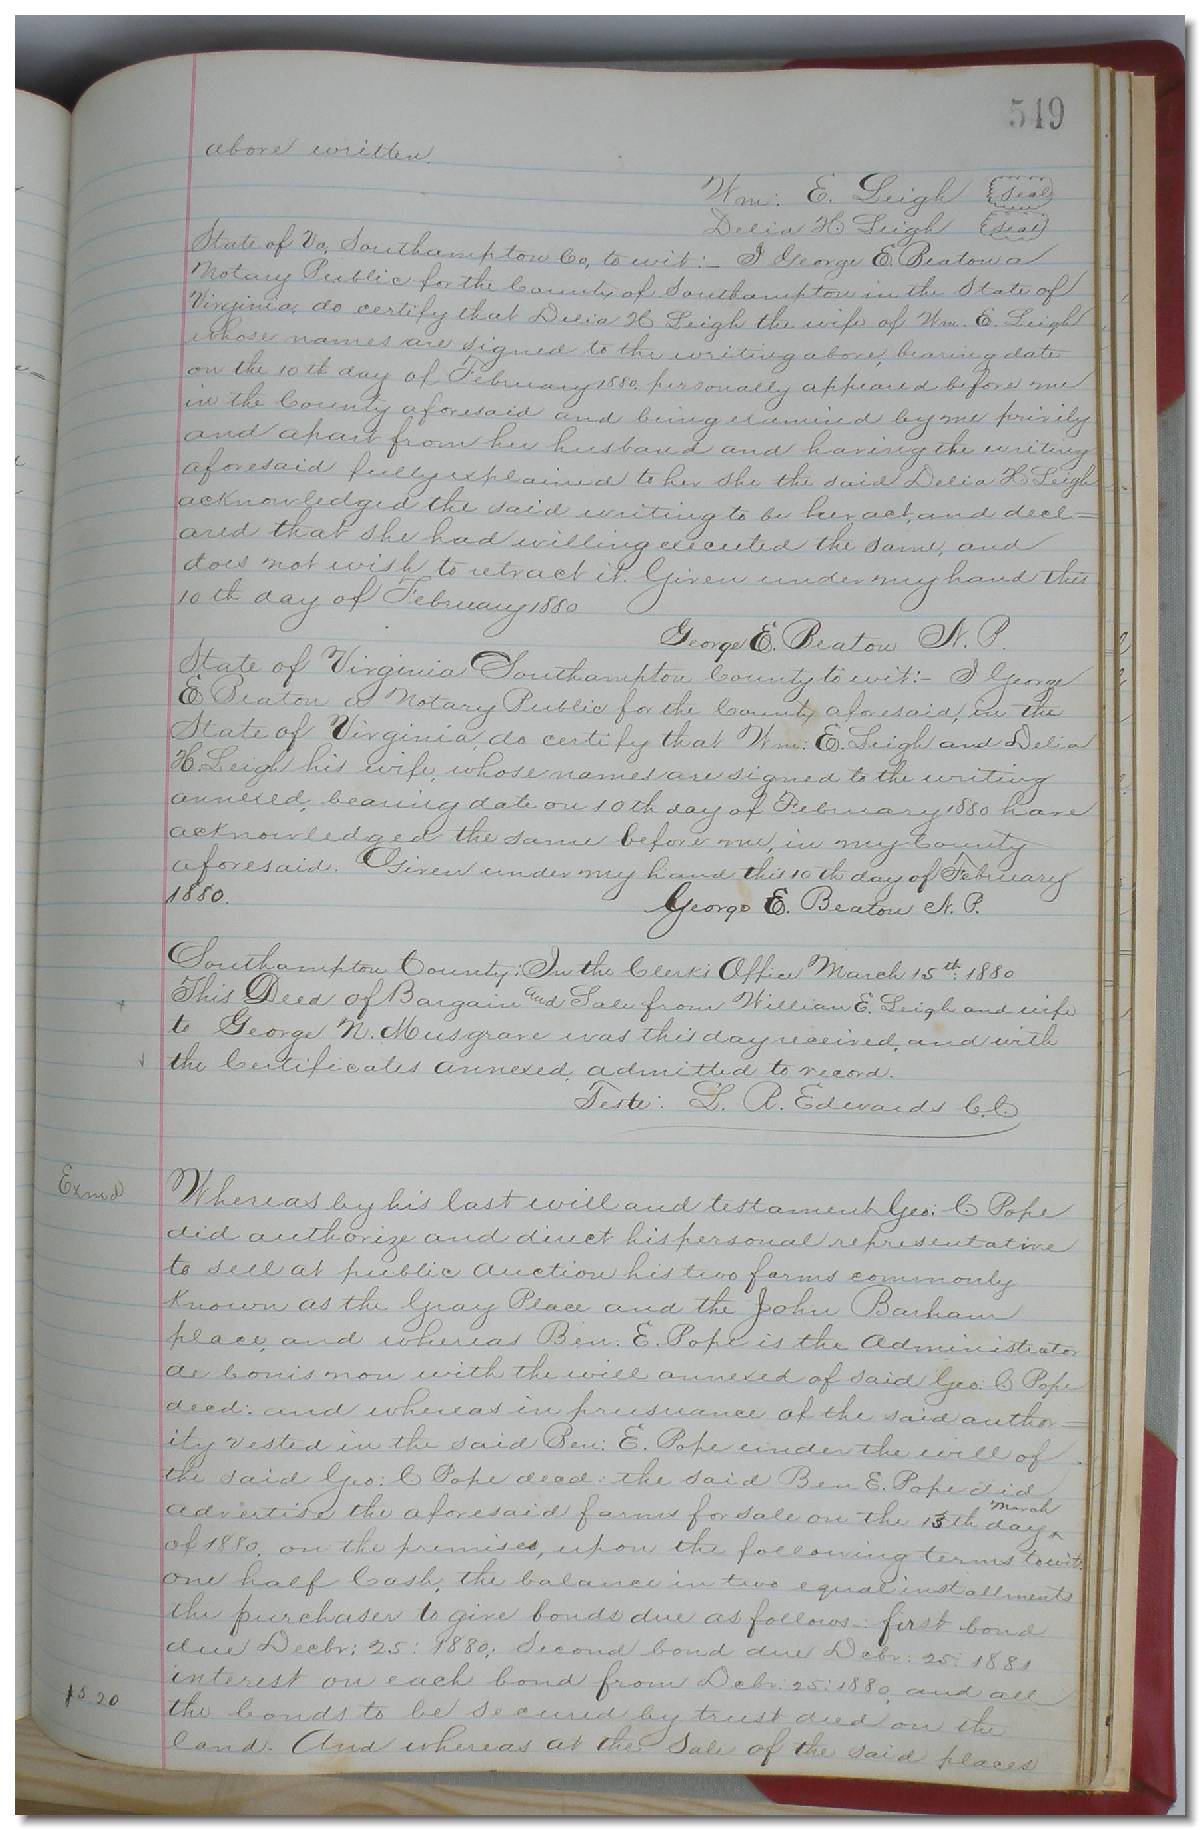 549
above written.
Wm: E. Leigh Seal
Delia H. Leigh Seal
State of Va, Southampton Co, to wit:- I George E. Beaton a
Notary Public for the County of Southampton in the State of
Virginia, do certify that Delia H Leigh the wife of Wm. E. Leigh
whose names are signed to the writing above, bearing date
on the 10th day of February 1880, personally appeared before me
in the County aforesaid and being examined by me privily
and apart from her husband and having the writing
aforesaid fully explained to her she the said Delia H Leigh
acknowledged the said writing to be her act, and decl=
ared that she had willing executed the same, and
does not wish to retract it. Given under my hand this
10th day of February 1880
George E. Beaton N. P.
State of Virginia Southampton County to wit:- I George
E Beaton a Notary Public for the County aforesaid, in the
State of Virginia, do certify that Wm: E. Leigh and Delia
H Leigh his wife, whose names are signed to the writing
annexed, bearing date on 10th day of February 1880 have
acknowledged the same before me, in my County
aforesaid. Given under my hand this 10th day of February
1880.
George E. Beaton N. P.
Southampton County: In the Clerk's Office March 15th: 1880
This Deed of Bargain and Sale from William E. Leigh and wife
to George N. Musgrave was this day received, and with
the Certificates annexed, admitted to record.
Teste: L. R. Edwards C.C.
Exmd
Whereas by his last will and testament Geo: C Pope
did authorize and direct his personal representative
to sell at public auction his two farms commonly
Known as the Gray Place and the John Barham
place, and whereas Ben. E. Pope is the Administrator
de bonis non with the will annexed of said Geo: C Pope
decd: and whereas in prusuance of the said author=
ity vested in the said Ben: E. Pope under the will of
the said Geo: C Pope decd: the said Ben E. Pope did
advertise the aforesaid farms for sale on the 13th day ^ March
of 1880, on the premises, upon the following terms to wit:
one half Cash, the balance in two equal installments
the purchaser to give bonds due as follows-: first bond
due Decbr: 25: 1880; Second bond due Debr: 25: 1881
interest on each bond from Debr: 25: 1880, and all
15 20
the bonds to be secured by trust deed on the
land. And whereas at the Sale of the said places